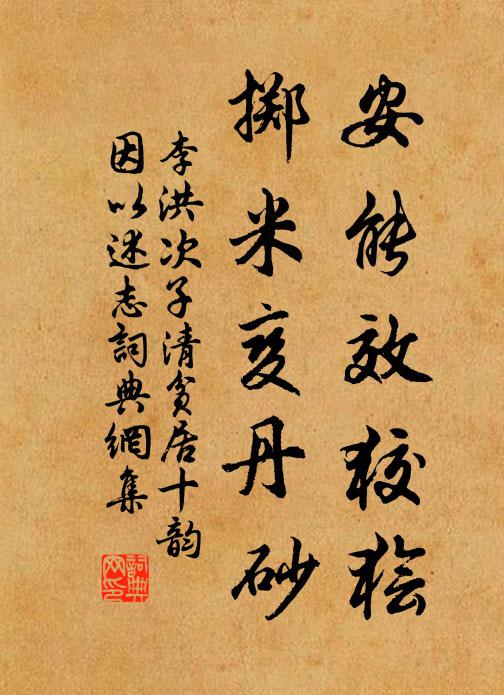 安能效狡狯
掷米变丹砂
李洪次子清贫居十韵
因以述志詞典網集
詞典
网印